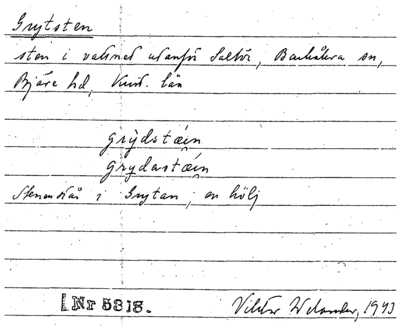 Grytsten
sten i vattnet utanför Saltör, Barkåkra sn,
Bjäre hd, Krist. län
grydstæin
grydastæin
Stenen står i Grytan, en hölj
Nr 5318.
Viktor Welander, 1943